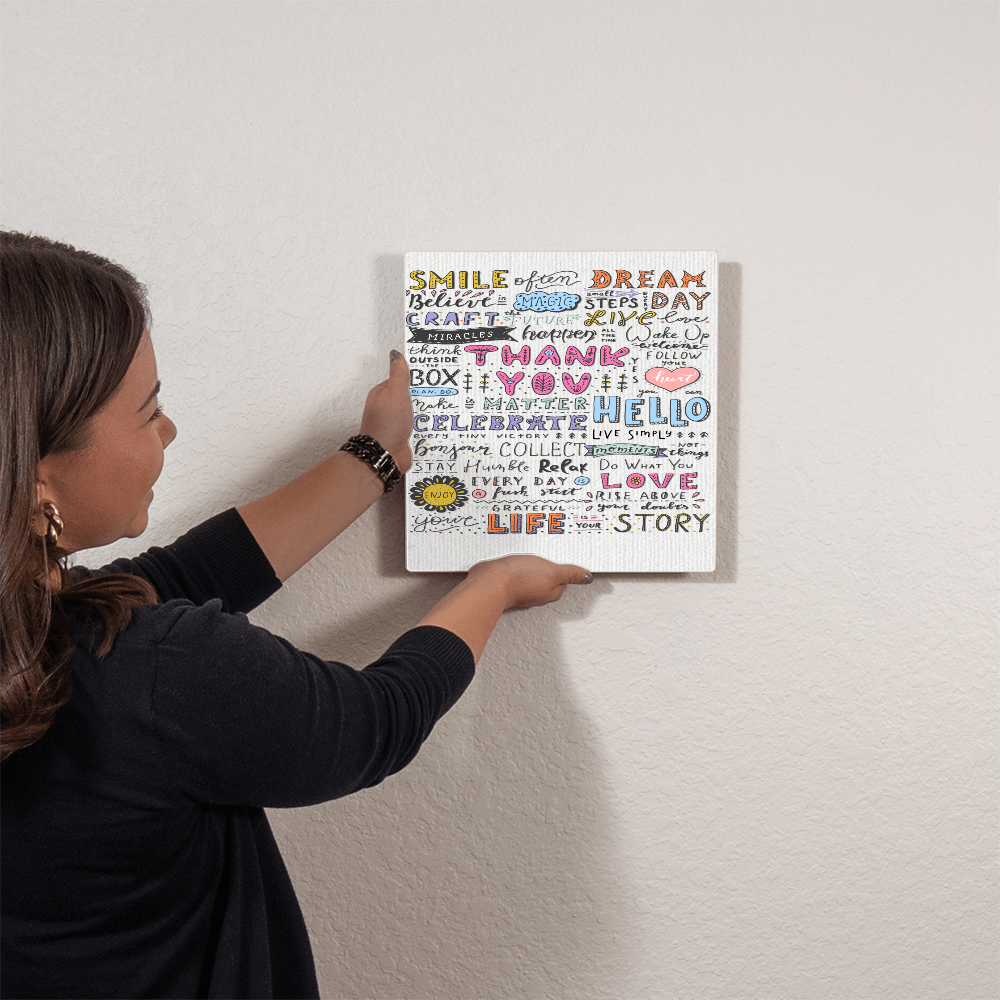 SMILE often DREAM
Believe in MAGIC small STEPS every DAY
CRAFT the FUTURE LIVE love
MIRACLES happen ALL THE TIME Wake Up
think OUTSIDE THE BOX
PLAN. DO.
THANK YOU
YES
welcome
FOLLOW your heart
you can
Make it MATTER
HELLO
CELEBRATE
every tiny victory
LIVE Simply
bonjour COLLECT MOMENTS NOT things
STAY Humble Relax
Do What You LOVE
ENJOY
EVERY DAY is a fresh start
RISE ABOVE your doubts
GRATEFUL
your LIFE IS YOUR STORY